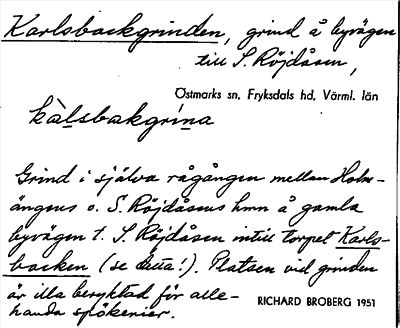 Karlsbackgrinden, grind å byvägen
till S. Röjdåsen,
Östmarks sn, Fryksdals hd, Värml. län
kàlsbakgrina
Grind i själva rågången mellan Holm-
ängens o. S. Röjdåsens hmn å gamla
byvägen t. S. Röjdåsen intill torpet Karls-
backen (se detta!). Platsen vid grinden
är illa beryktad för alle-
handa spökenier.
RICHARD BROBERG 1951